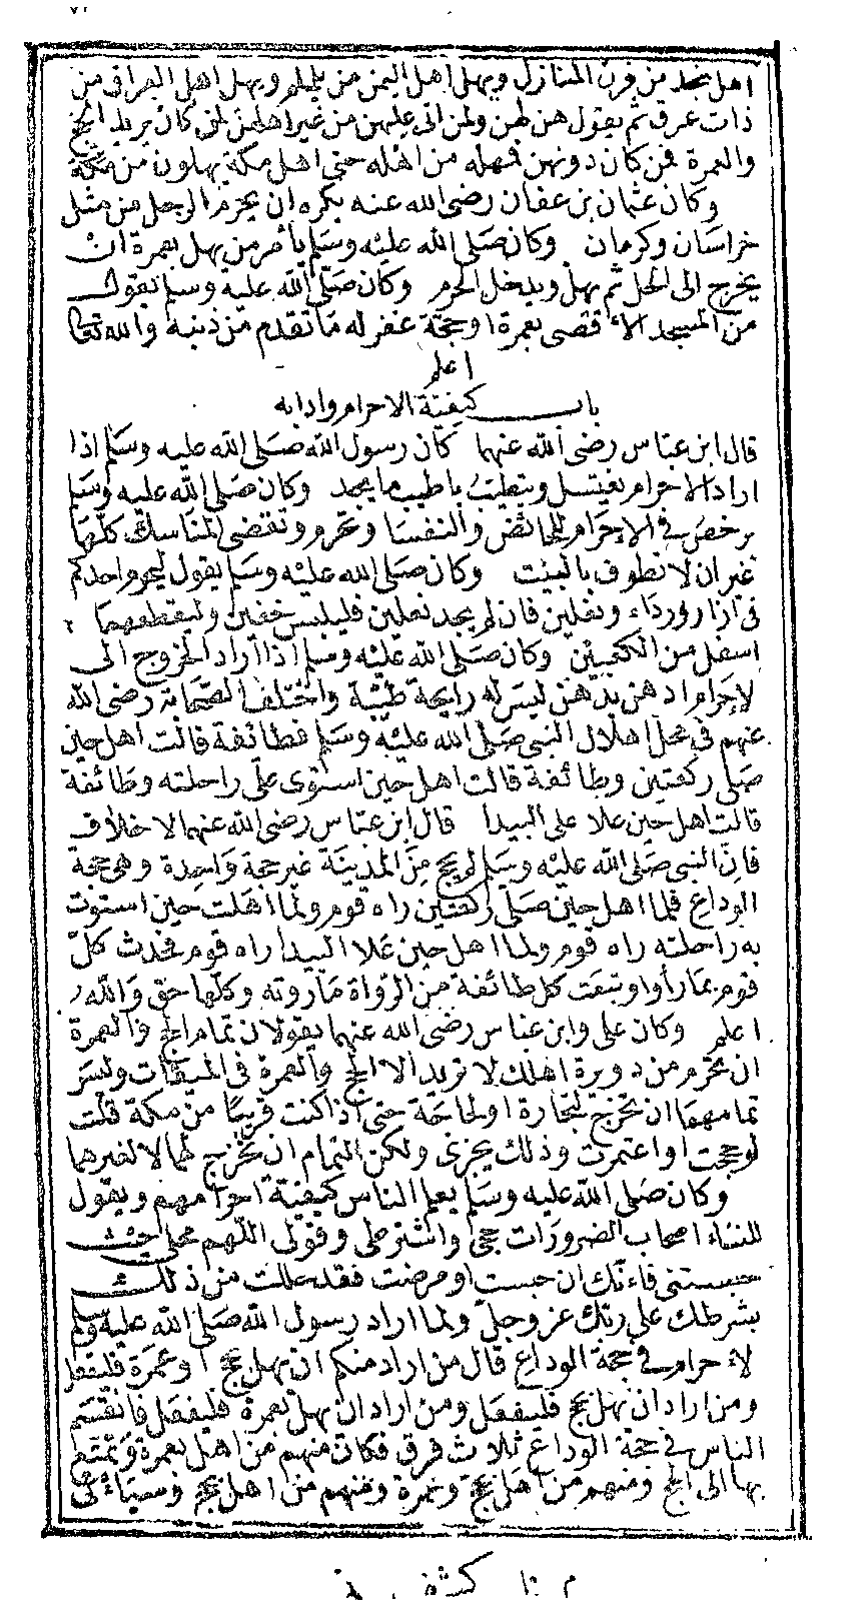 اهل نجد من قرن المنازل ويهل اهل اليمن من يلملم ويهل اهل العراق من
ذات عرق ثم يقول هن لهن ولمن اتى عليهن من غير اهلهن لمن كان يريد الحج
والعمرة فمن كان دونهن فمهله من اهله حتى اهل مكة يهلون من مكة
وكان عثمان بن عفان رضى الله عنه يكره ان يحرم الرجل من مثل
خراسان وكرمان وكان صلى الله عليه وسلم يأمر من يهل بعمرة ان
يخرج الى الحل ثم يهل ويدخل الحرم وكان صلى الله عليه وسلم يقول
من المسجد الاقصى بعمرة او حجة غفر له ما تقدم من ذنبه والله تعالى
اعلم
باب كيفية الاحرام وادابه
قال ابن عباس رضى الله عنهما كان رسول الله صلى الله عليه وسلم اذا
اراد الاحرام يغتسل ويتطيب باطيب ما يجد وكان صلى الله عليه وسلم
يرخص فى الاحرام للحائض والنفسا وتحرم وتقضى المناسك كلها
غير ان لا تطوف بالبيت وكان صلى الله عليه وسلم يقول ليحرم احدكم
فى ازار ورداء ونعلين فان لم يجد نعلين فليلبس خفين وليقطعهما
اسفل من الكعبين وكان صلى الله عليه وسلم اذا اراد الخروج الى
الاحرام ادهن بدهن ليس له رايحة طيبة واختلف الصحابة رضى الله
عنهم فى محل اهلال النبى صلى الله عليه وسلم فطائفة قالت اهل حين
صلى ركعتين وطائفة قالت اهل حين استوى على راحلته وطائفة
قالت اهل حين علا على البيدا قال ابن عباس رضى الله عنهما لا خلاف
فان النبى صلى الله عليه وسلم لم يحج من المدينة غير حجة واحدة وهى حجة
الوداع فلما اهل حين صلى ركعتين راه قوم ولما اهلت حين استوت
به راحلته راه قوم ولما اهل حين علا البيدا راه قوم فحدث كل
قوم بما رأوا وتبعت كل طائفة من الرواة ما روته وكلها حق والله
اعلم وكان على وابن عباس رضى الله عنهما يقولان تمام الحج والعمرة
ان تحرم من دويرة اهلك لا تريد الا الحج والعمرة فى الميقات وليس
تمامهما ان تخرج لتجارة او لحاجة حتى اذا كنت قريبا من مكة قلت
لو حججت او اعتمرت وذلك يجزى ولكن التمام ان تخرج لهما لا لغيرهما
وكان صلى الله عليه وسلم يعلم الناس كيفية احرامهم ويقول
للنساء اصحاب الضرورات حجى واشترطى وقولى اللهم محلى حيث
حبستنى فانك ان حبست او مرضت فقد حللت من ذلك
بشرطك على ربك عز وجل ولما اراد رسول الله صلى الله عليه وسلم
الاحرام فى حجة الوداع قال من اراد منكم ان يهل بحج او عمرة فليفعل
ومن اراد ان يهل بحج فليفعل ومن اراد ان يهل بعمرة فليفعل فانقسم
الناس فى حجة الوداع ثلاث فرق فكان منهم من اهل بعمرة وتمتع
بها الى الحج ومنهم من اهل بحج وعمرة ومنهم من اهل بحج وسياتى